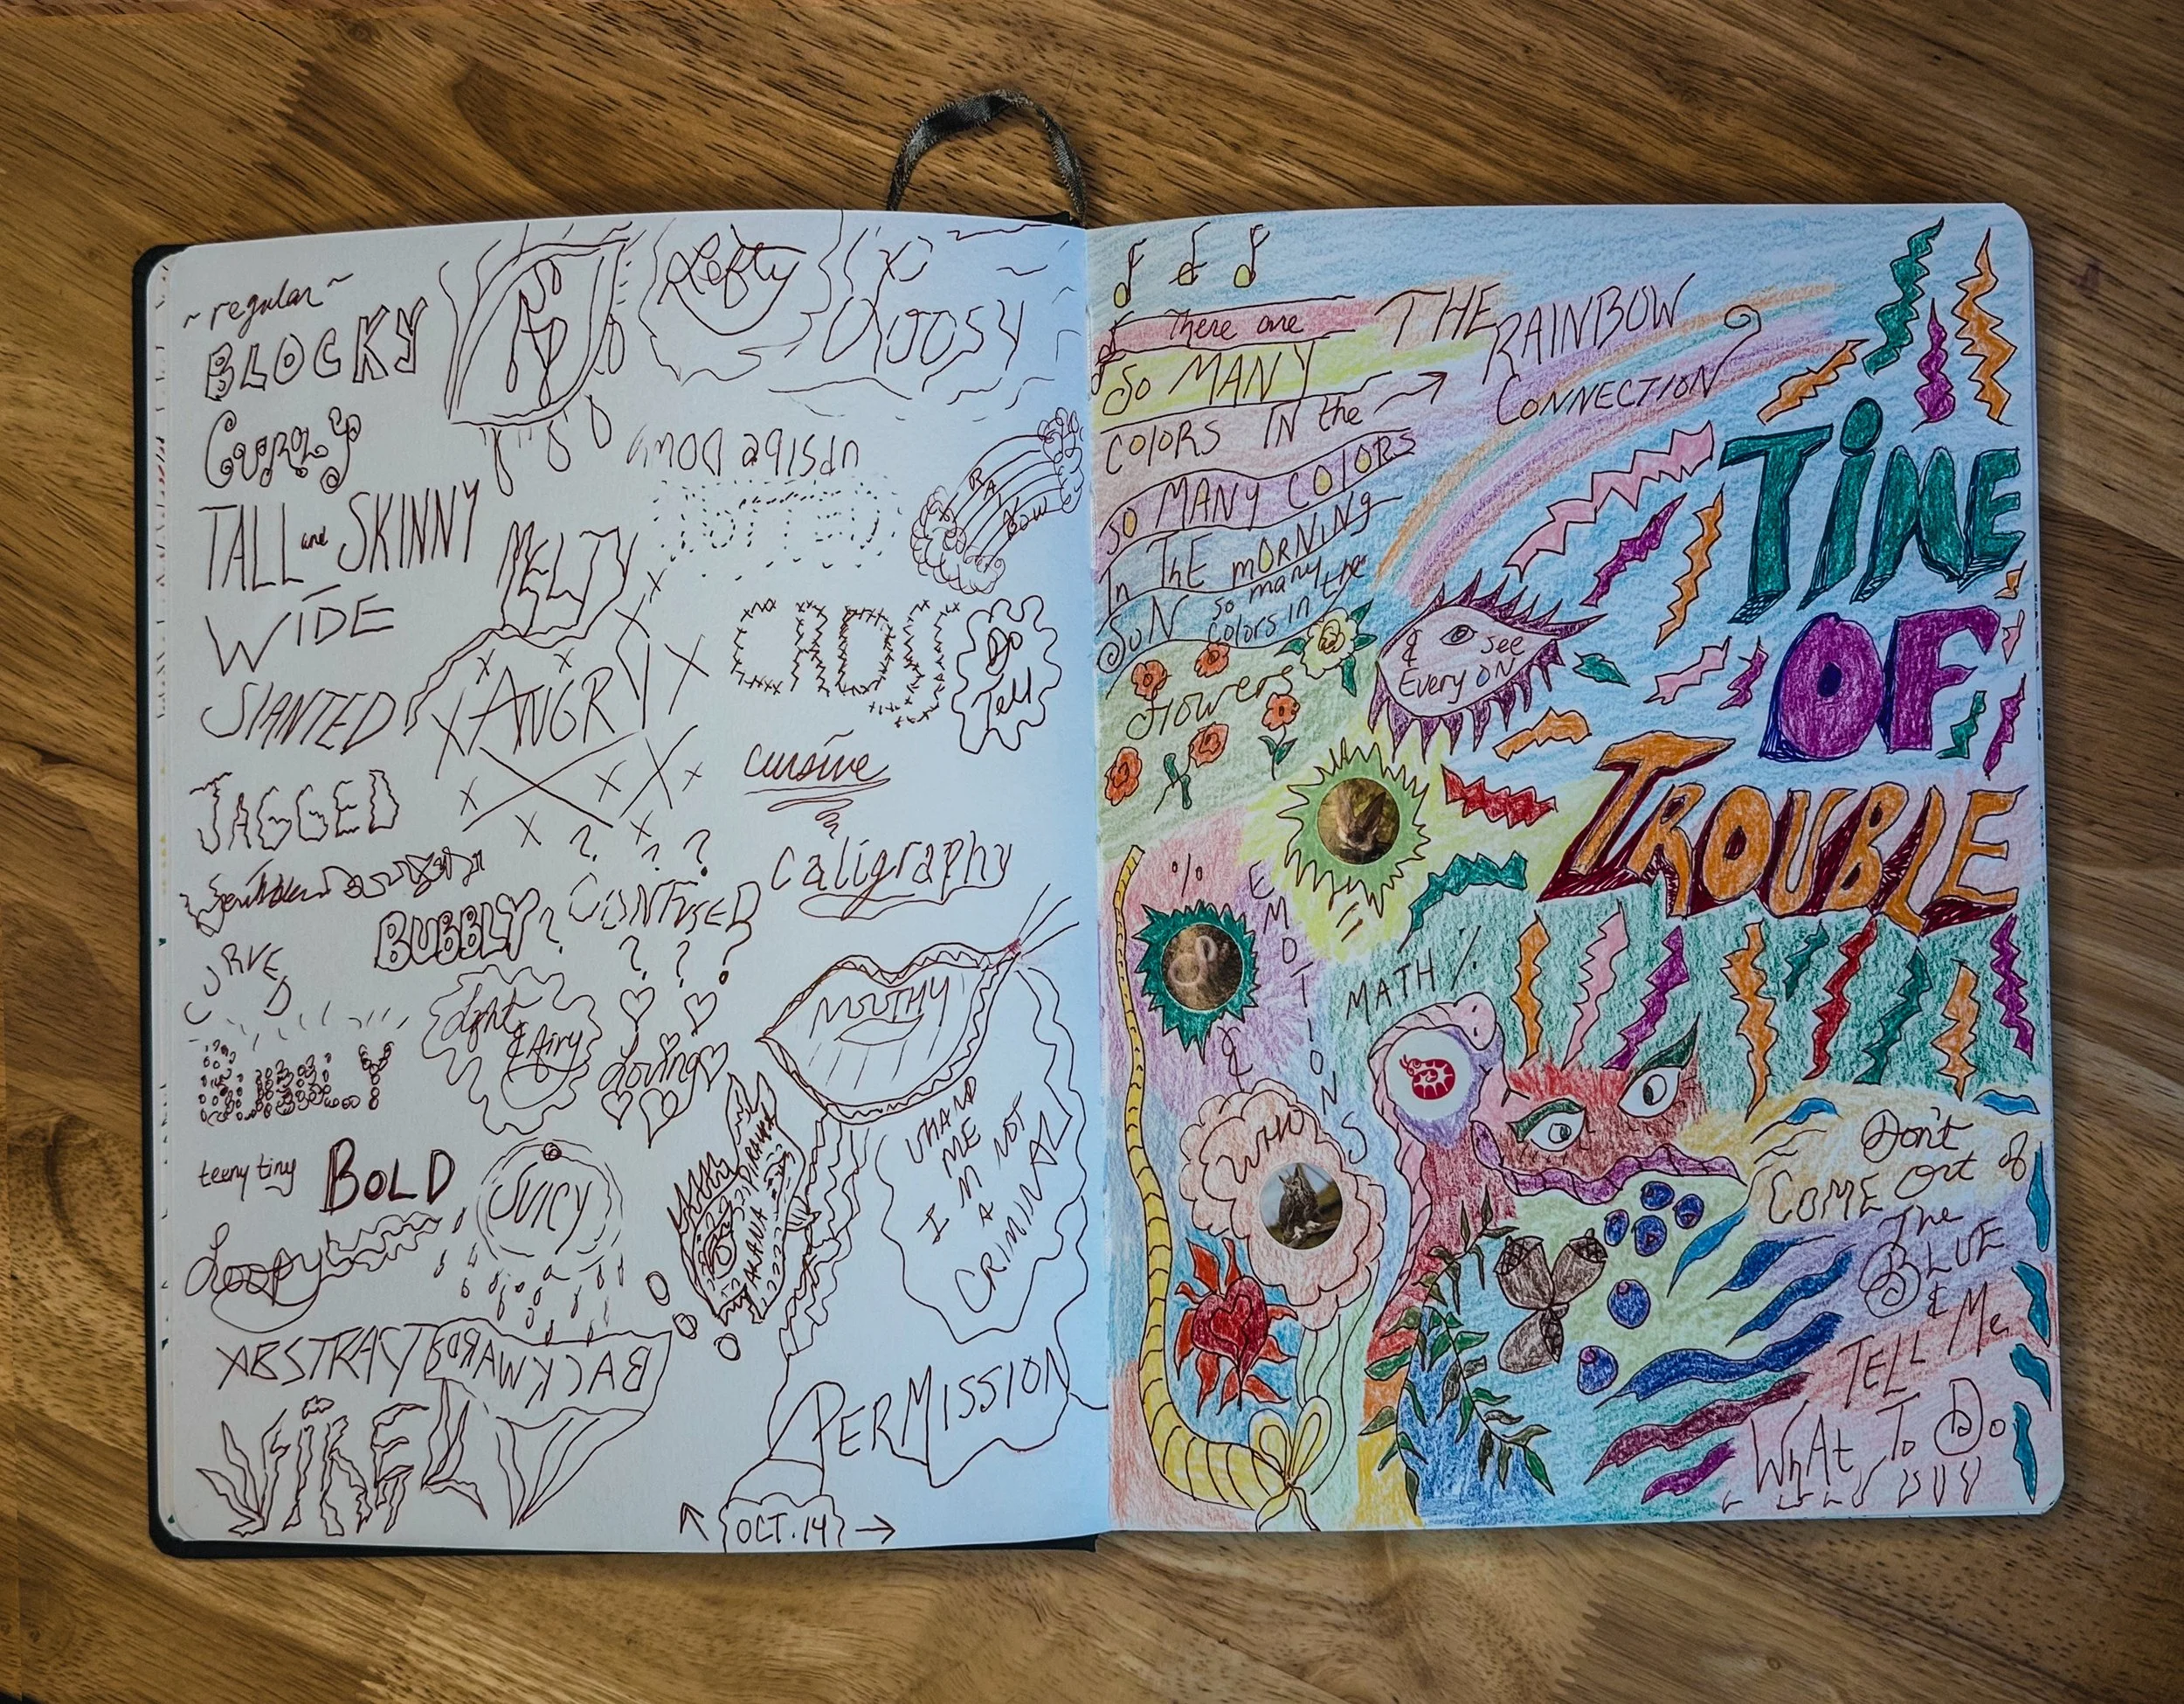 ~ regular ~
BLOCKY
CURLY
TALL and SKINNY
WIDE
SLANTED
JAGGED
CURVED
teeny tiny
BOLD
Loopy
ABSTRACT
BACKWARDS
Lefty
UPSIDE DOWN
DOTTED
RAINBOW
MELTY
ANGRY
Do
Tell
cursive
caligraphy
CONFUSED
? ? ?
BUBBLY
Light
& Airy
Loving
JUICY
MOUTHY
UNHAND
ME
I'M NOT
A
CRIMINAL
PERMISSION
OCT. 14
There are
SO MANY
COLORS IN the
THE
RAINBOW
CONNECTION
SO MANY COLORS
In THE mORNING
SUN
so many
colors in the
Flowers
&
see
Every ON
TiME
OF
TROUBLE
%
EMOTIONS
MATH %
&
WHO
Don't
COME Out of
The
BLUE
& Me
TELL Me
WhAt To Do